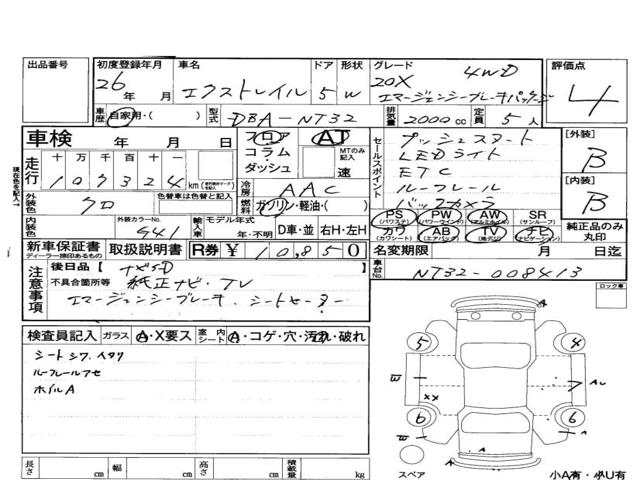 出品番号 初度登録年月 車名 ドア 形状 グレード 評価点
26 年 月 エクストレイル 5 W 20X 4WD
エマージェンシーブレーキパッケージ 4
車歴 自家用・( ) 型式 DBA-NT32 排気量 2000 cc 定員 5 人
車検 年 月 日 フロア AT プッシュスタート [外装]
コラム・ MTのみ記入 LEDライト B
ダッシュ 速 セールスポイント ETC
走行 十 万 千 百 十 一 ルーフレール [内装]
107324 km 冷房 AAC バックカメラ B
外装色 クロ 色替車は色替と記入 燃料 ガソリン・軽油・( )
PS (パワステ) PW (パワーウインド) AW (アルミホイル) SR (サンルーフ)
カワ (カワシート) AB (エアバック) TV ナビ (ナビゲーション) 純正品のみ丸印
内装色 外装カラーNo. G41 輸入車 モデル年式 年・不明 D車・並 右H・左H
新車保証書 ディーラー捺印あるもの 取扱説明書 R券 ¥ 10,850 名変期限 月 日迄
車台No. NT32-008413
現在色を記入↑
注意事項 後日品【 ナビSD 】
不具合箇所等 純正ナビ・TV
エマージェンシーブレーキ.シートヒーター
ロック車
検査員記入 ガラス A・X要ス 室内シート A・コゲ・穴・汚れ・破れ
シートシワ.ヘタリ
ルーフレールアセ
ホイルA
A
5 4
W AU
XX
6 6
W
A
スペア 小A有・小U有
長さ cm 幅 cm 高さ cm 積載量 kg